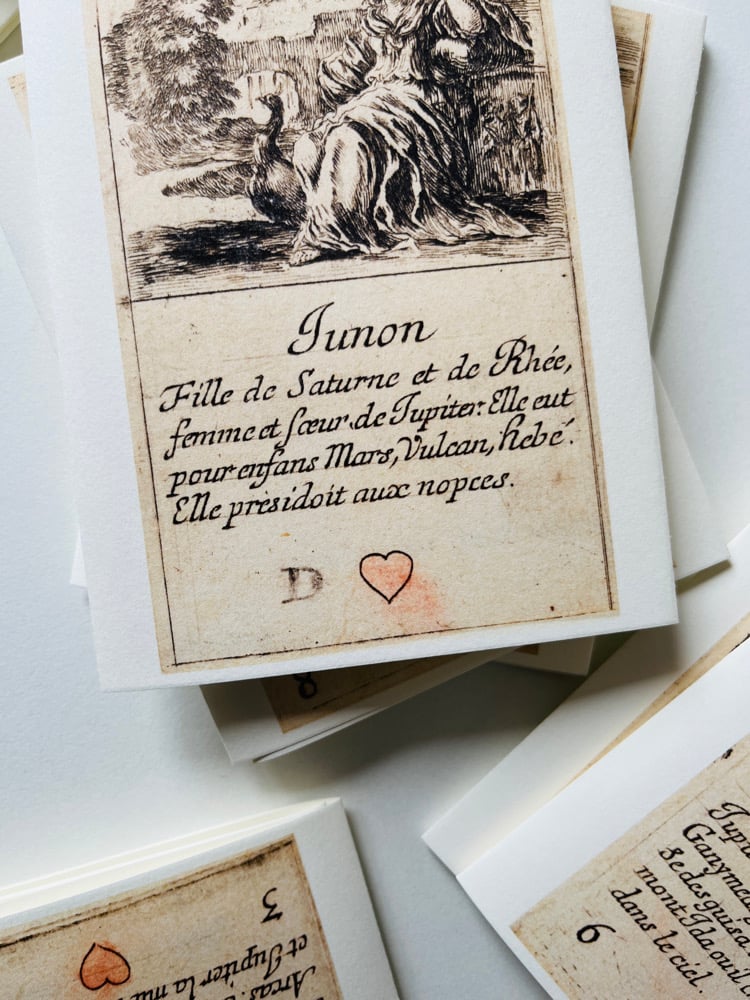 Junon
Fille de Saturne et de Rhée,
femme et sœur de Jupiter. Elle eut
pour enfans Mars, Vulcan, hebé.
Elle présidoit aux nopces.
D
8
3
et Jupiter la
Arcas.
Ganymed
Se desguisa
mont Ida ou il
dans le ciel.
9